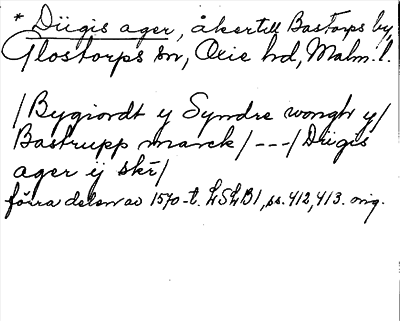 * Diigis ager, åker till Bastorps by,
Glostorps sn, Oxie hd, Malm. l.
/Bygiordt y Syndre wongh y/
Bastrupp marck/---/Diigis
ager ij skr/
förra delen av 1570-t. LSLB1, ss. 412, 413. orig.